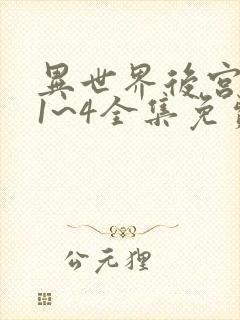 異世界後宮
1~4全集免
公元狸